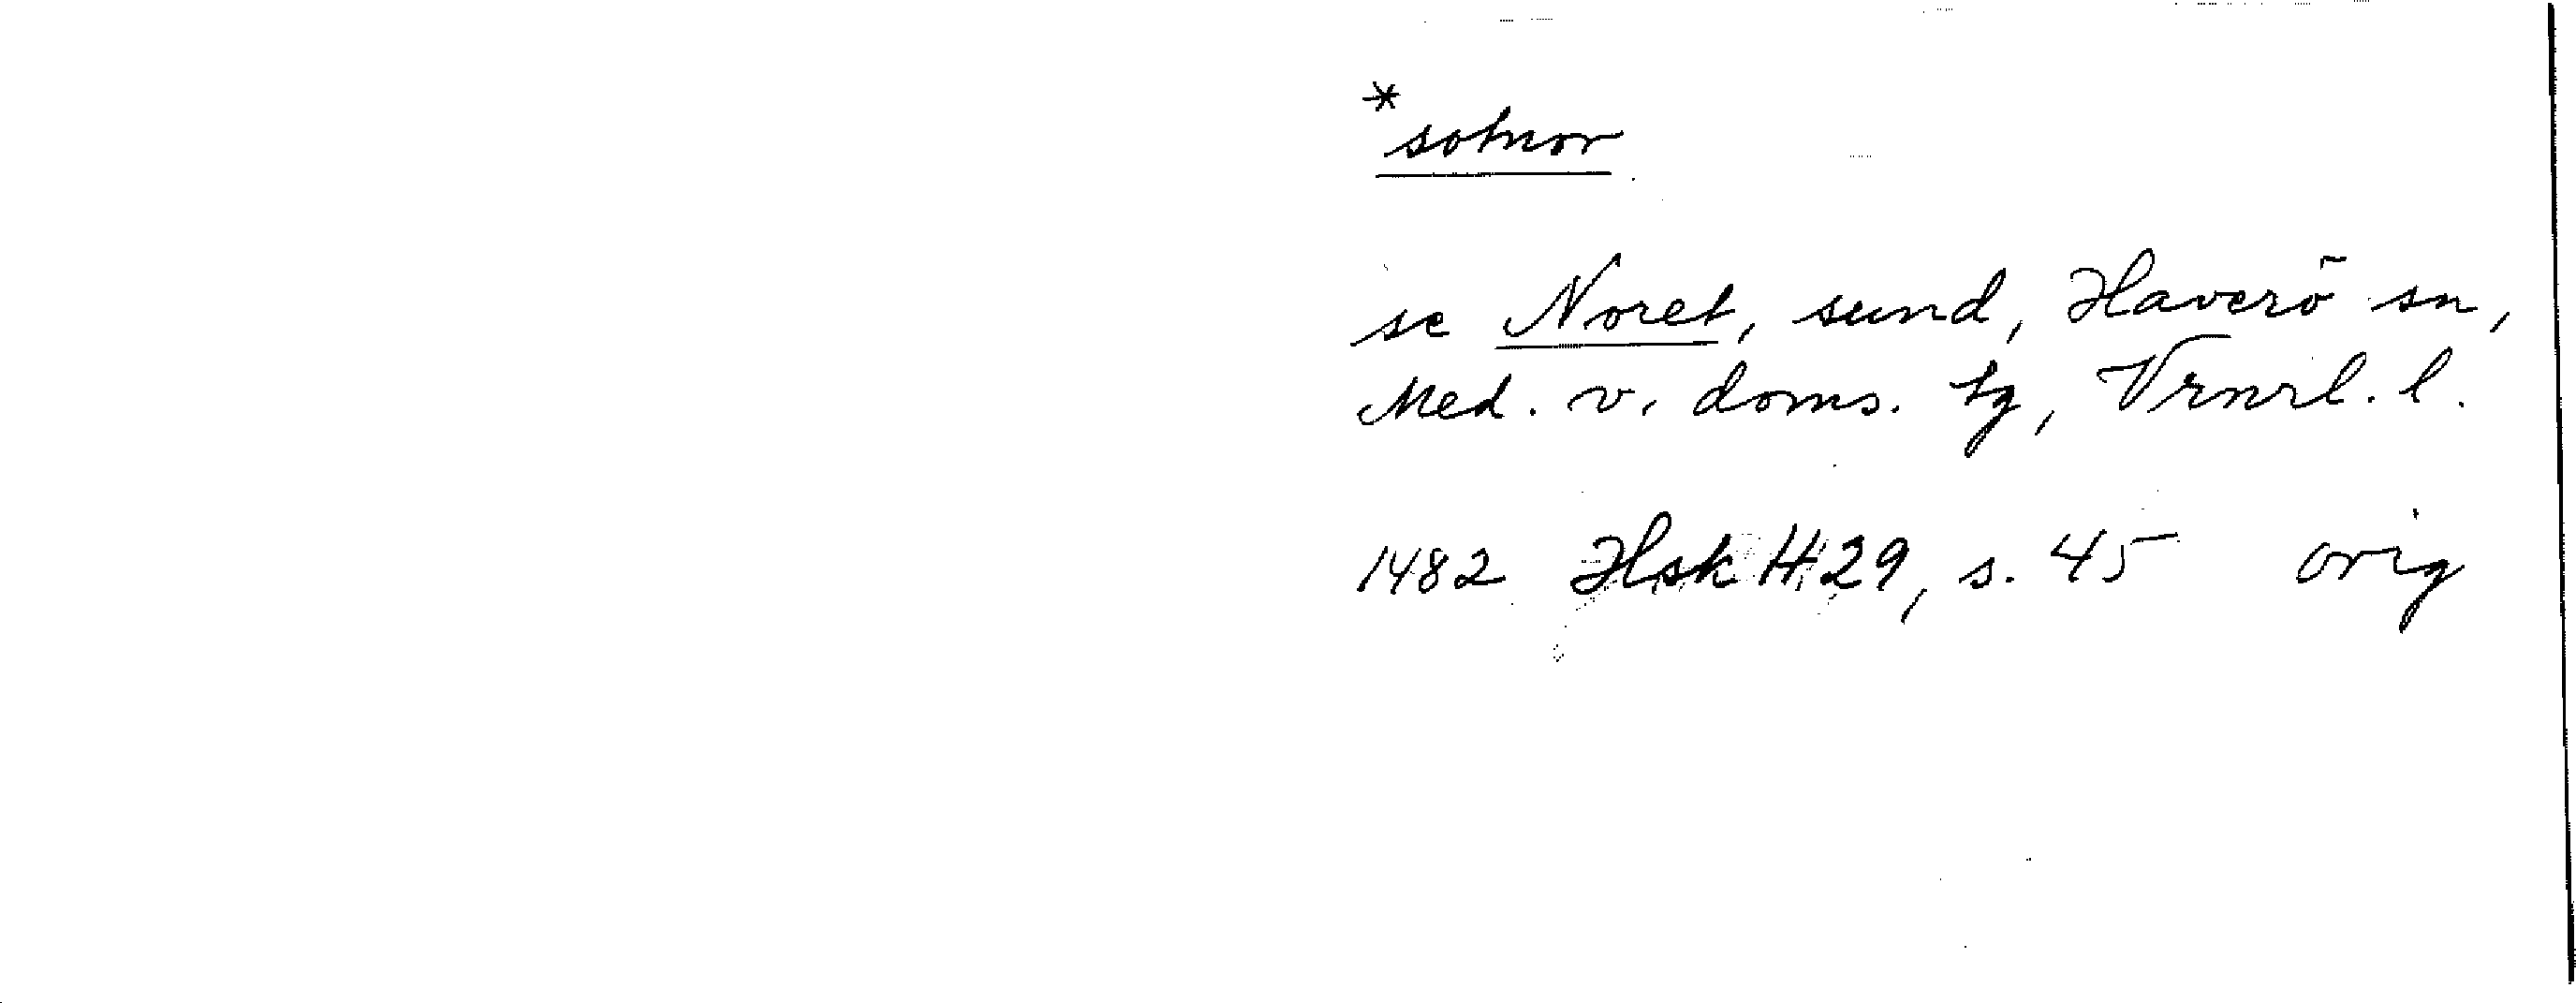 *sotnor
se Noret, sund, Haverö sn,
Med. v. doms. tg, Vrnrl. l.
1482 Hsk H 29, s. 45 orig